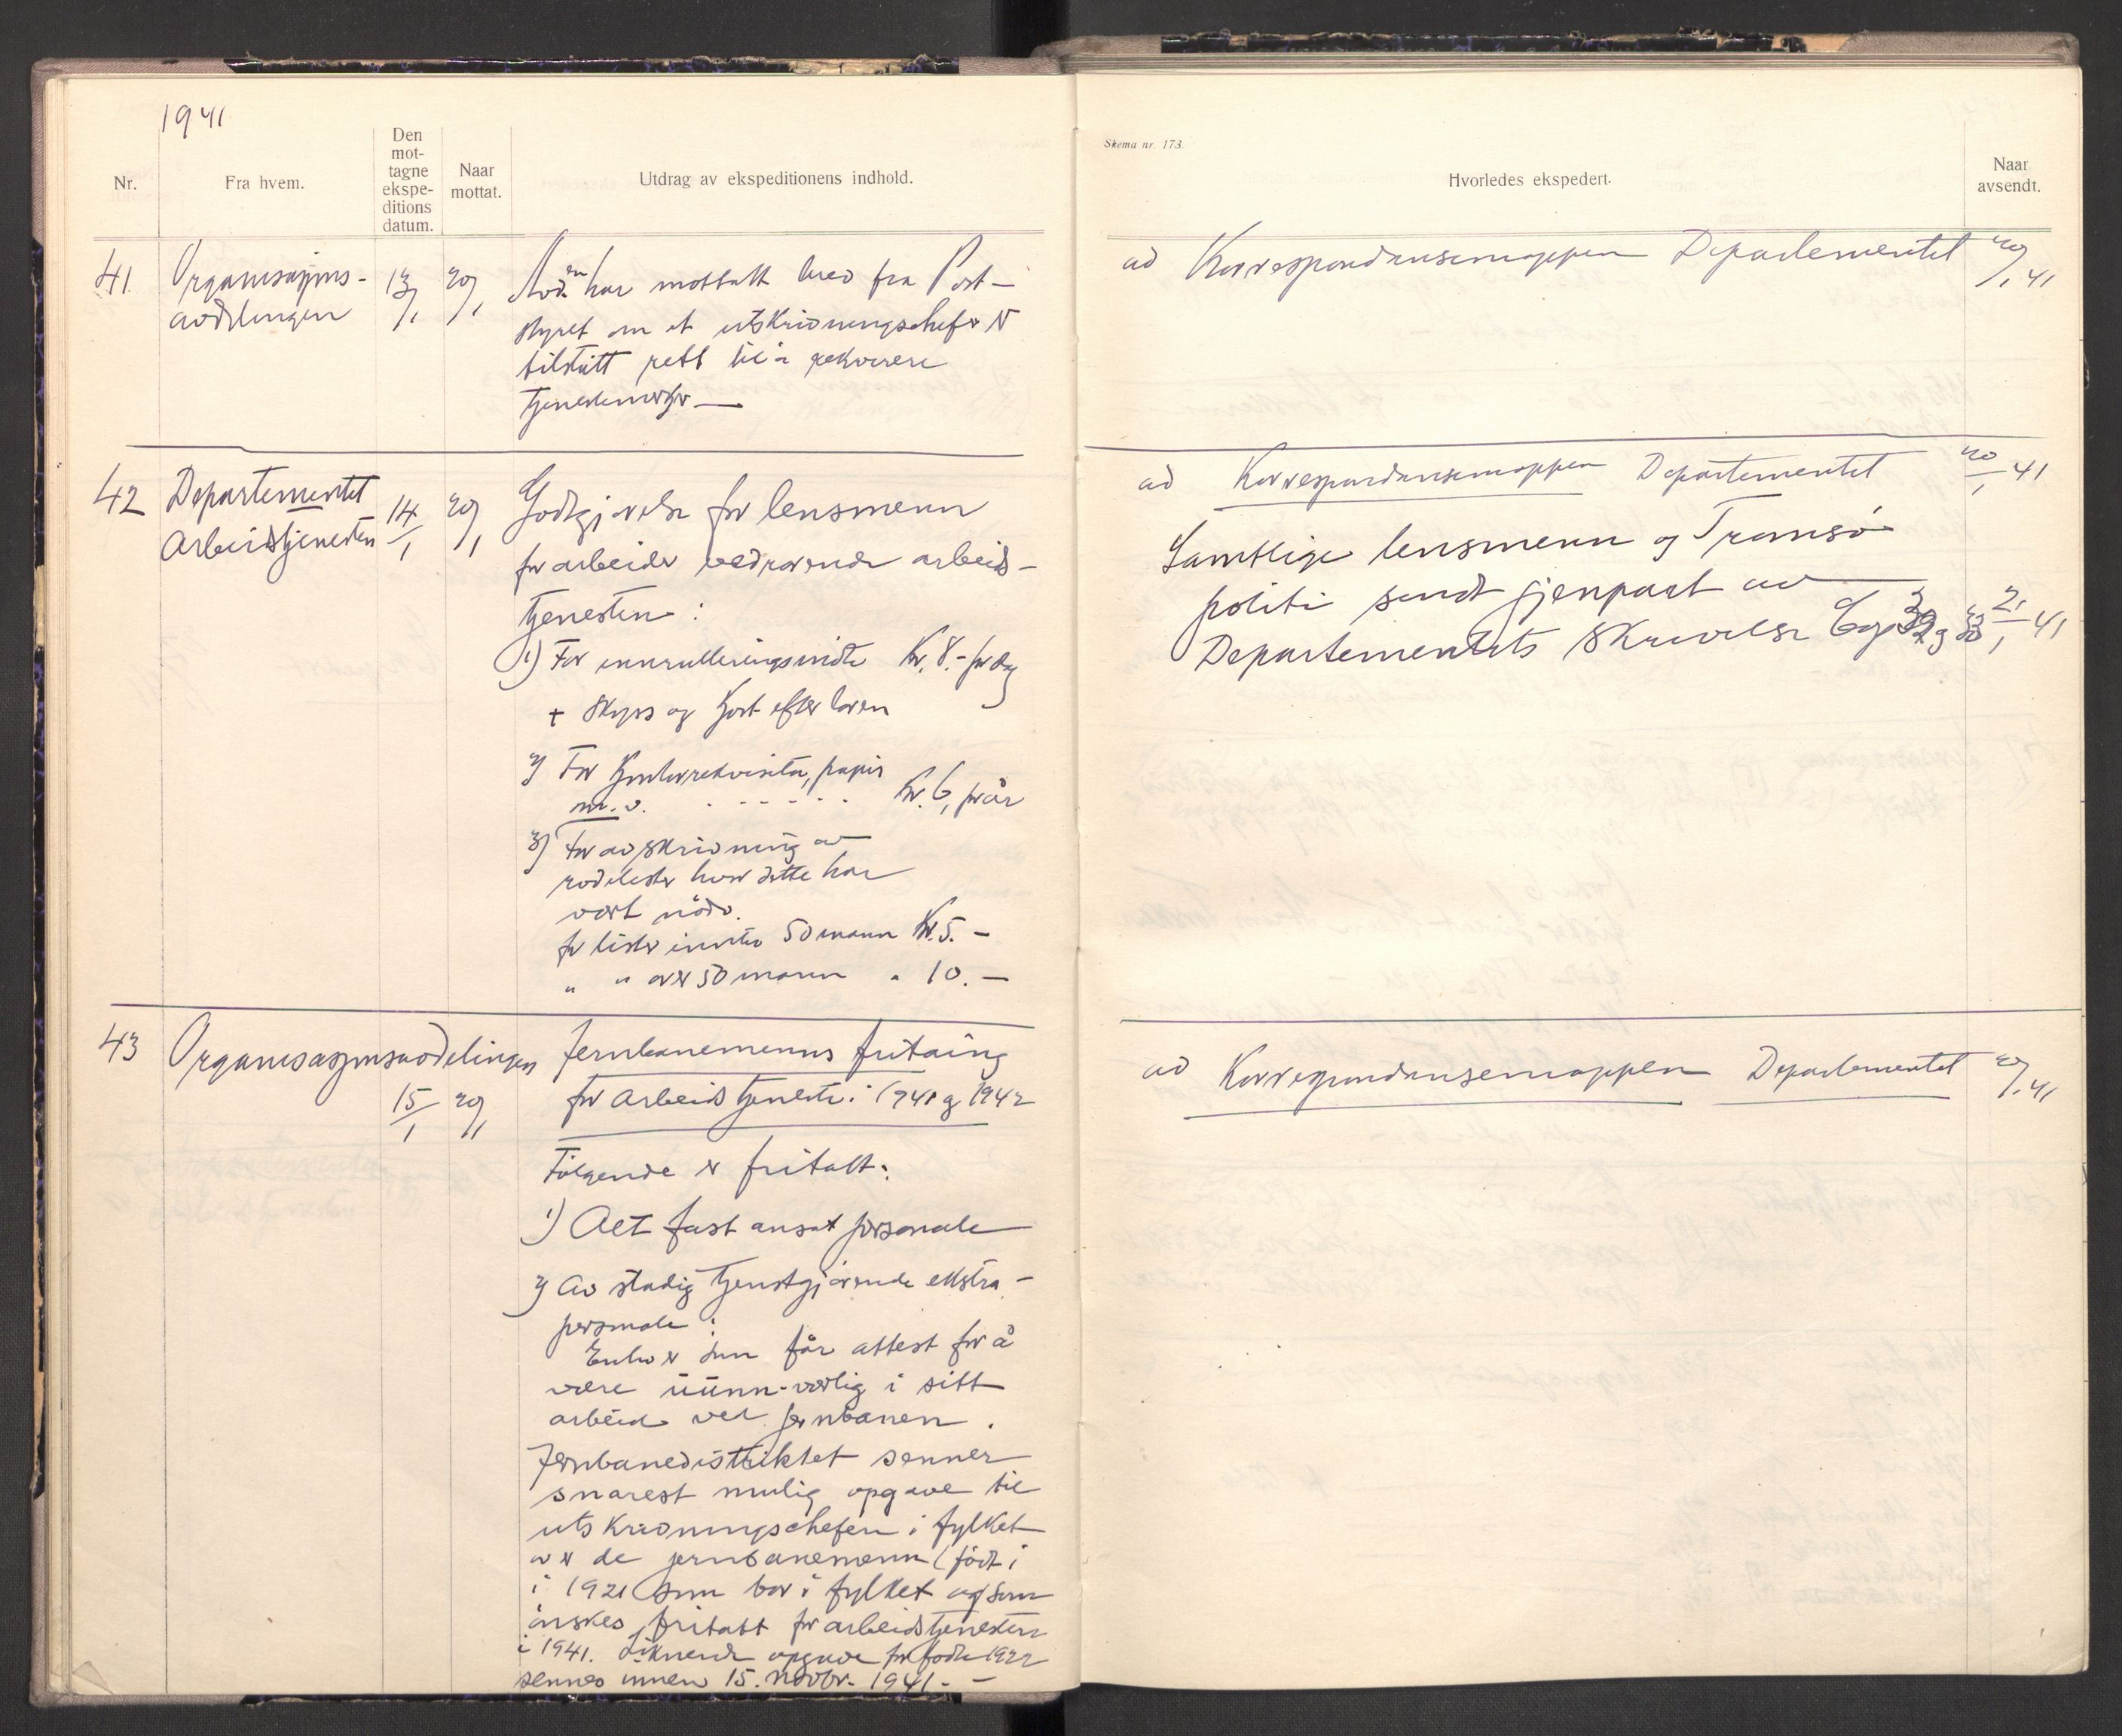 1941
Nr.
Fra hvem.
Den
mot-
tagne
ekspe-
ditions
datum.
Naar
mottat.
Utdrag av ekspeditionens indhold.
41
Organisasjons-
avdelingen
13/1
20/1
Avd.en har mottatt brev fra Post-
styret om at utskrivningschef er
tilstått rett til å rekvirere
tjenestemerker —
42
Departementet
Arbeidstjenesten
14/1
20/1
Godtgjørelse for lensmenn
for arbeider vedrørende arbeids-
tjenesten:
1) For innrulleringsmøte Kr. 8.- pr dag
+ Skyss og Kost efter loven
2) For Kontorrekvisita, papir
m.v. . - - - - . Kr. 6, pr år
3) For avskrivning av
rodelister hvor dette har
vært nødv.
for lister inntil 50 mann Kr. 5. -
" " over 50 mann " 10. -
43
Organisasjonsavdelingen
15/1
20/1
Jernbanemenns fritaing
for Arbeidstjeneste i 1941 og 1942
Følgende er fritatt:
1) Alt fast ansat personale
2) Av stadig tjenstgjørende ekstra-
personale:
Enhver som får attest for å
være uunn-værlig i sitt
arbeid ved jernbanen.
Jernbanedistriktet sender
snarest mulig opgave til
utskrivningschefen i fylket
over de jernbanemenn (født i
i 1921) som bor i fylket og som
ønskes fritatt for arbeidstjenesten
i 1941. Liknende opgave for fødte 1922
sendes innen 15. novbr. 1941. -
Skema nr. 173.
Hvorledes ekspedert.
Naar
avsendt.
ad Korrespondansemappen Departementet 20/1 41
ad Korrespondansemappen Departementet 20/1 41
Samtlige lensmenn og Tromsø
politi sendt gjenpart av
Departementets skrivelse 21/1 41
ad Korrespondansemappen Departementet 20/1 41